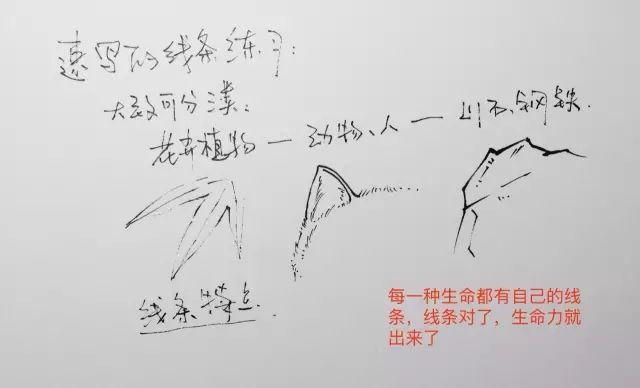 速写的线条练习:
大致可分类:
花卉植物一动物、人一山石、钢铁.
线条特点
每一种生命都有自己的线
条，线条对了，生命力就
出来了